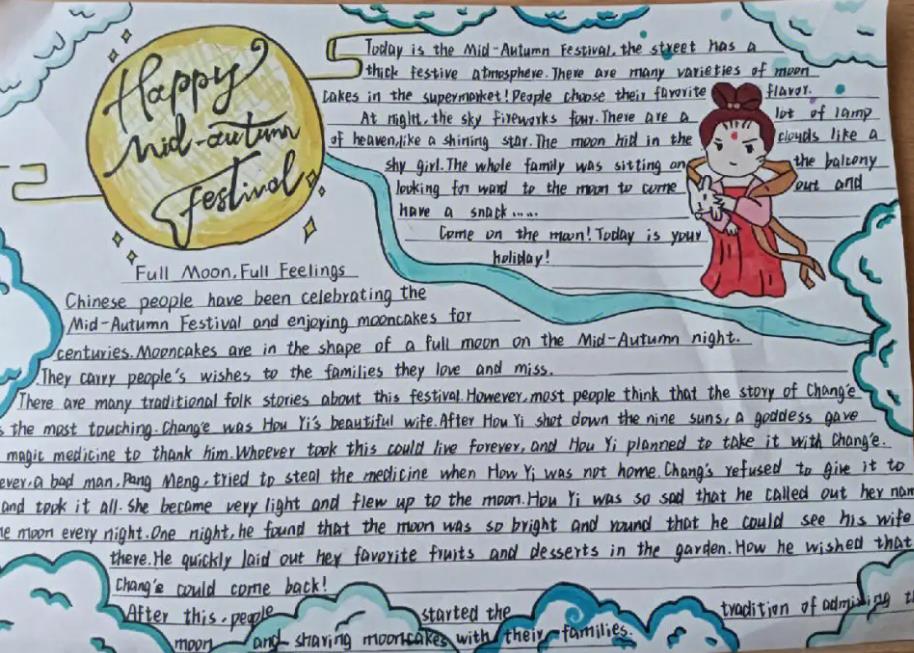 Happy
Mid-autumn
Festival
Today is the Mid-Autumn Festival, the street has a
thick festive atmosphere. There are many varieties of moon
cakes in the supermarket! People choose their favorite flavor.
At night, the sky fireworks four. There are a lot of lamp
of heaven, like a shining star. The moon hid in the clouds like a
shy girl. The whole family was sitting on the balcony
looking for ward to the moon to come out and
have a snack.....
Come on the moon! Today is your
holiday!
Full Moon, Full Feelings
Chinese people have been celebrating the
Mid-Autumn Festival and enjoying mooncakes for
centuries. Mooncakes are in the shape of a full moon on the Mid-Autumn night.
They carry people's wishes to the families they love and miss.
There are many traditional folk stories about this festival. However, most people think that the story of Chang'e
s the most touching. Chang'e was Hou Yi's beautiful wife. After Hou Yi shot down the nine suns, a goddess gave
magic medicine to thank him. Whoever took this could live forever, and Hou Yi planned to take it with Chang'e.
ever, a bad man, Pang Meng, tried to steal the medicine when How Yi was not home. Chang's refused to give it to
and took it all. She became very light and flew up to the moon. Hou Yi was so sad that he called out her nam
he moon every night. One night, he found that the moon was so bright and round that he could see his wife
there. He quickly laid out her favorite fruits and desserts in the garden. How he wished that
Chang'e could come back!
After this, people started the tradition of admiring th
moon and sharing mooncakes with their families.